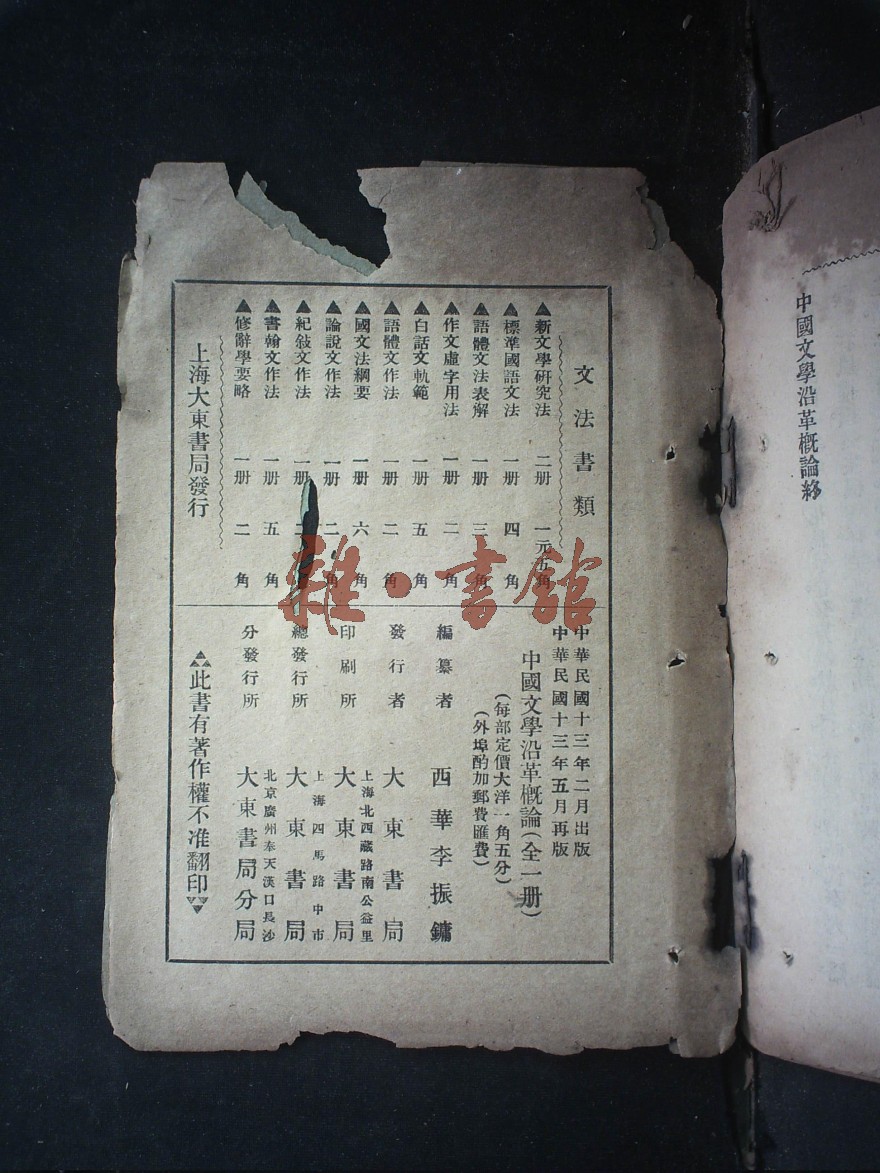 中國文學沿革概論終
文法書類
▲新文學研究法 二册 一元五角
▲標準國語文法 一册 四角
▲語體文法表解 一册 三角
▲作文虛字用法 一册 二角
▲白話文軌範 一册 五角
▲語體文作法 一册 二角
▲國文法綱要 一册 六角
▲論說文作法 一册 二角
▲紀敍文作法 一册
▲書翰文作法 一册 五角
▲修辭學要略 一册 二角
上海大東書局發行
中華民國十三年二月出版
中華民國十三年五月再版
中國文學沿革概論(全一册)
(每部定價大洋一角五分)
(外埠酌加郵費匯費)
編纂者 西華李振鏞
發行者 大東書局
上海北西藏路南公益里
印刷所 大東書局
上海四馬路中市
總發行所 大東書局
北京廣州奉天漢口長沙
分發行所 大東書局分局
此書有著作權不准翻印
雜·書館